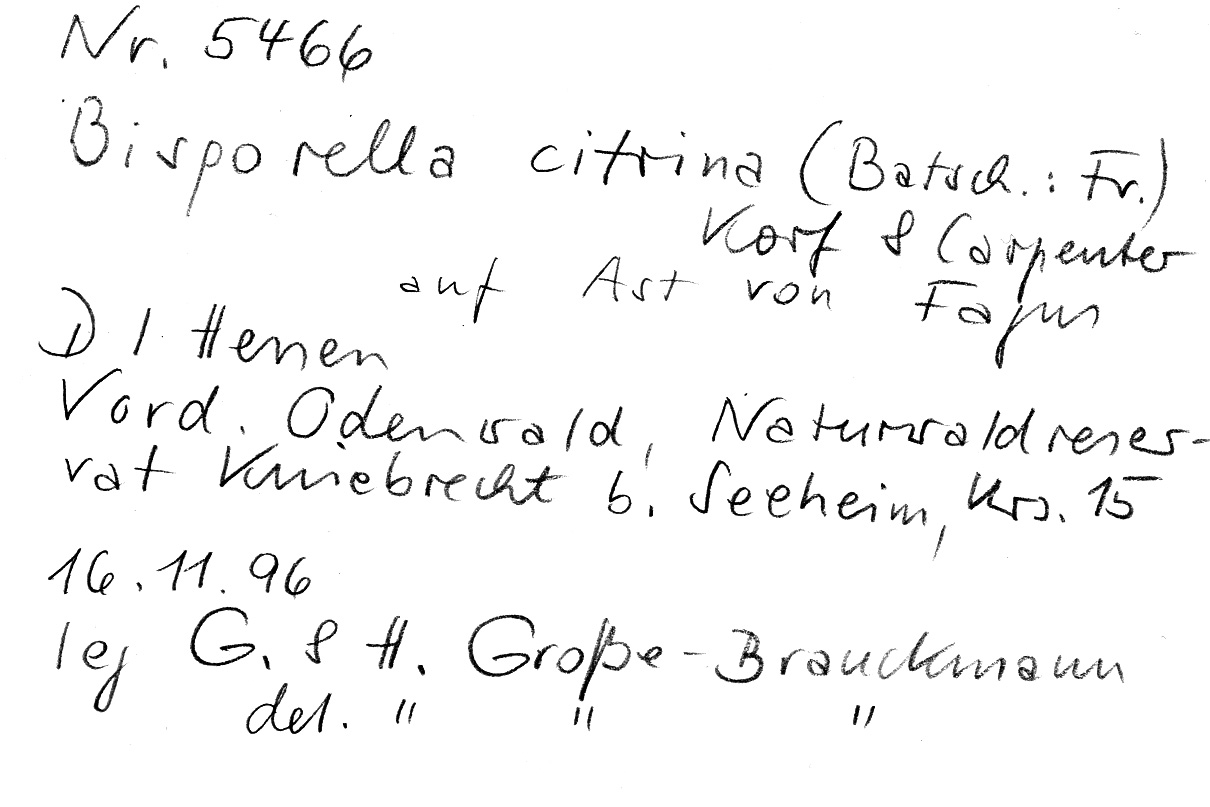 Nr. 5466
Bisporella citrina (Batsch.: Fr.)
Korf & Carpenter
auf Ast von Fagus
D / Hessen
Vord. Odenwald, Naturwaldreser-
vat Kniebrecht b. Seeheim, Krs. 15
16.11.96
leg G. & H. Große-Brauckmann
det. " " "